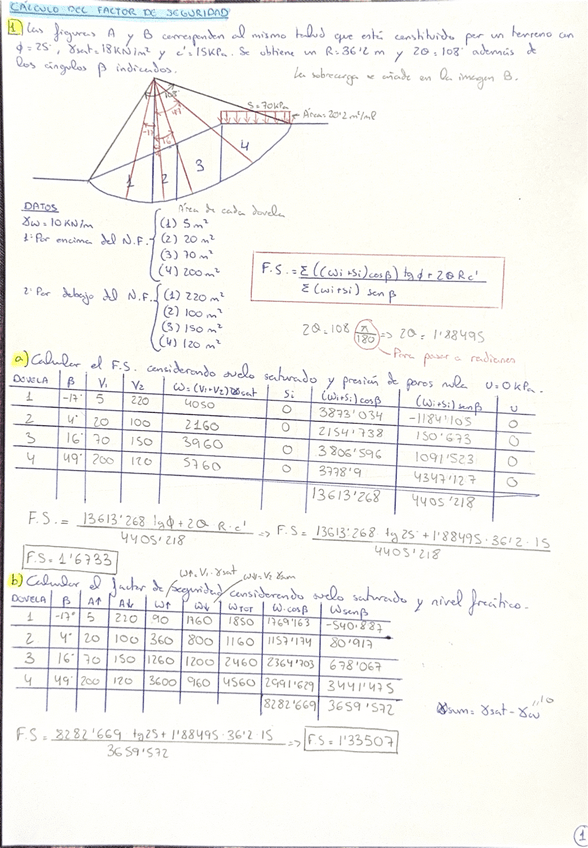 CÁLCULO DEL FACTOR DE SEGURIDAD
1 Las figuras A y B corresponden al mismo talud que está constituido por un terreno con
ϕ = 25°, γsat = 18 KN/m² y c' = 15 KPa. Se obtiene un R = 36'2 m y 2θ = 108° además de
los ángulos β indicados.
La sobrecarga se añade en la imagen B.
108°
49°
-17°
16°
S = 70 KPa
Área = 20'2 m²/ml
1 2 3 4
DATOS
γw = 10 KN/m
Área de cada dovela
1: Por encima del N.F.
(1) 5 m²
(2) 20 m²
(3) 70 m²
(4) 200 m²
2: Por debajo del N.F.
(1) 220 m²
(2) 100 m²
(3) 150 m²
(4) 120 m²
F.S. = Σ((ωi+Si)cosβ) tgϕ + 2θRc'
Σ(ωi+Si) senβ
2θ = 108 π/180 => 2θ = 1'88495
Para pasar a radianes
a) Calcular el F.S. considerando suelo saturado y presión de poros nula U = 0 kPa.
DOVELA β V1 V2 ω = (V1+V2)γsat Si (ωi+Si)cosβ (ωi+Si)senβ U
1 -17° 5 220 4050 0 3873'034 -1184'105 0
2 4° 20 100 2160 0 2154'738 150'673 0
3 16° 70 150 3960 0 3806'596 1091'523 0
4 49° 200 120 5760 0 3778'9 4347'127 0
13613'268 4405'218
F.S. = 13613'268 tgϕ + 2θ·R·c' => F.S. = 13613'268 tg25 + 1'88495·36'2·15
4405'218 4405'218
F.S = 1'6733
ω↑ = V1·γsat ω↓ = V2 γsum
b) Calcular el factor de seguridad considerando suelo saturado y nivel freático.
DOVELA β A↑ A↓ ω↑ ω↓ ωTOT ω·cosβ ωsenβ
1 -17° 5 220 90 1760 1850 1769'163 -540'887
2 4° 20 100 360 800 1160 1157'174 80'917
3 16° 70 150 1260 1200 2460 2364'703 678'067
4 49° 200 120 3600 960 4560 2991'629 3441'475
8282'669 3659'572
γsum = γsat - γω 10
F.S = 8282'669 tg25 + 1'88495·36'2·15 => F.S = 1'33507
3659'572
1